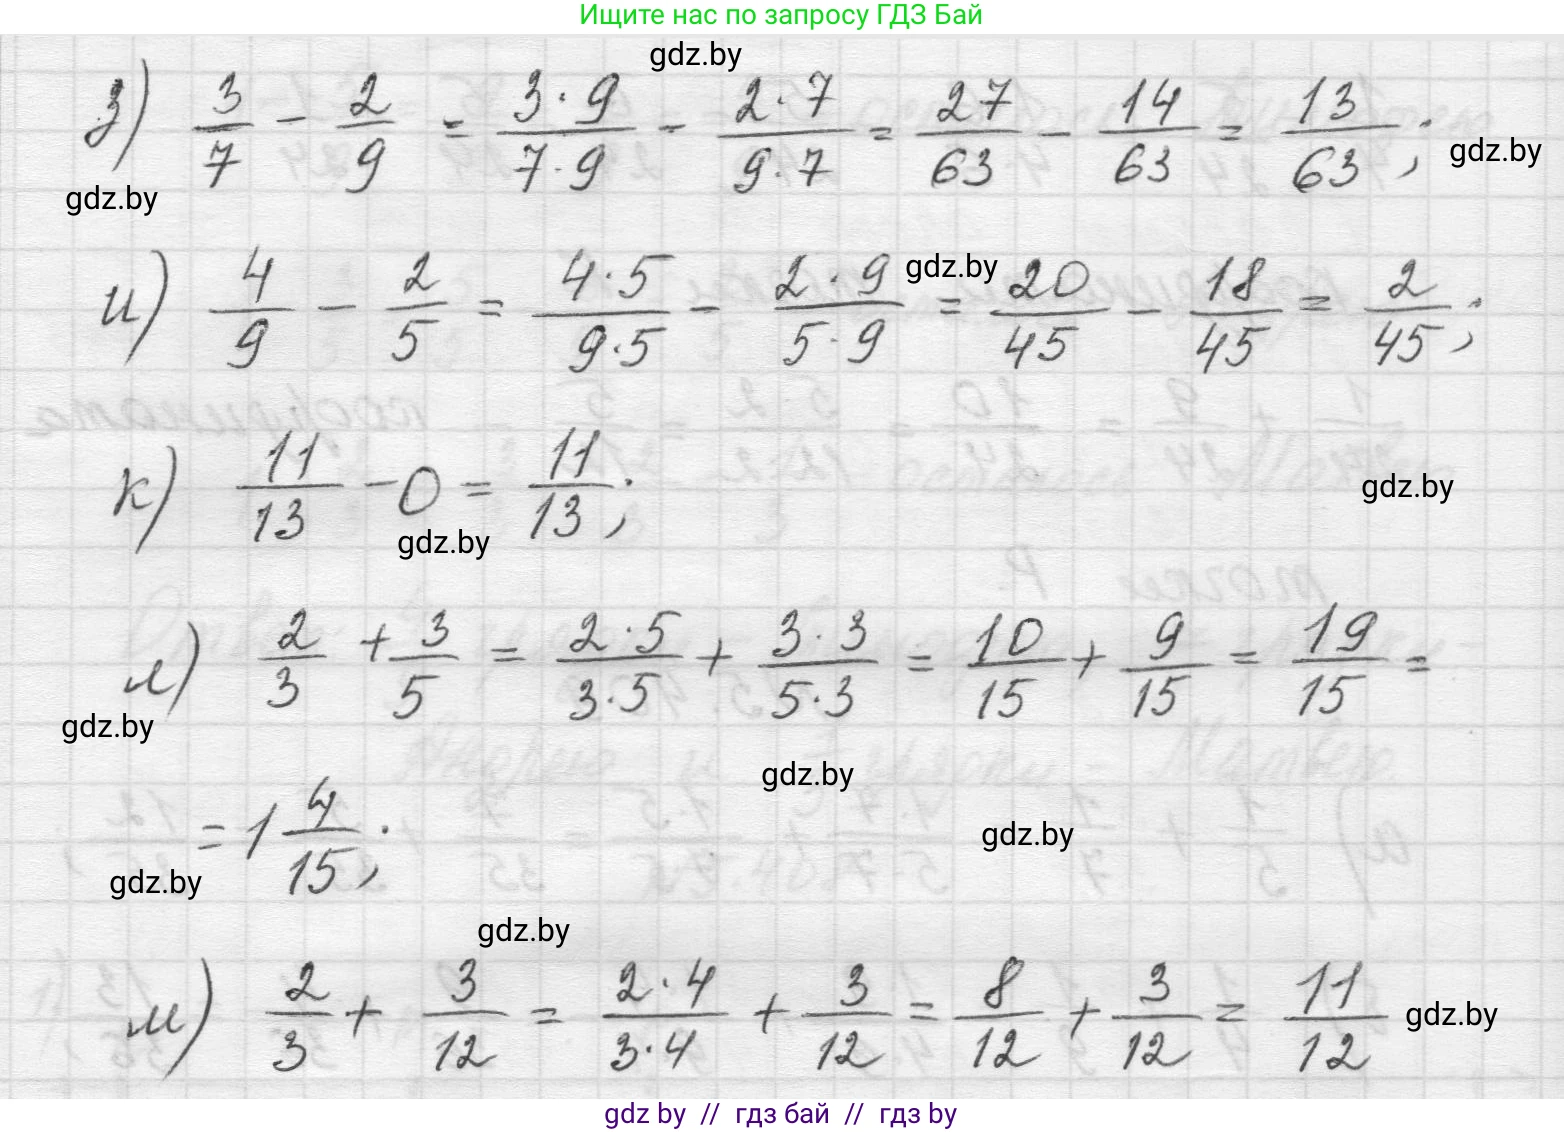 Ищите нас по запросу ГДЗ Бай
gdz.by
з) 3/7 - 2/9 = 3·9/7·9 - 2·7/9·7 = 27/63 - 14/63 = 13/63;
gdz.by
gdz.by
и) 4/9 - 2/5 = 4·5/9·5 - 2·9/5·9 = 20/45 - 18/45 = 2/45;
gdz.by
к) 11/13 - 0 = 11/13;
gdz.by
gdz.by
л) 2/3 + 3/5 = 2·5/3·5 + 3·3/5·3 = 10/15 + 9/15 = 19/15 =
gdz.by
gdz.by
= 1 4/15;
gdz.by
gdz.by
gdz.by
м) 2/3 + 3/12 = 2·4/3·4 + 3/12 = 8/12 + 3/12 = 11/12
gdz.by
gdz by // гдз бай // гдз by